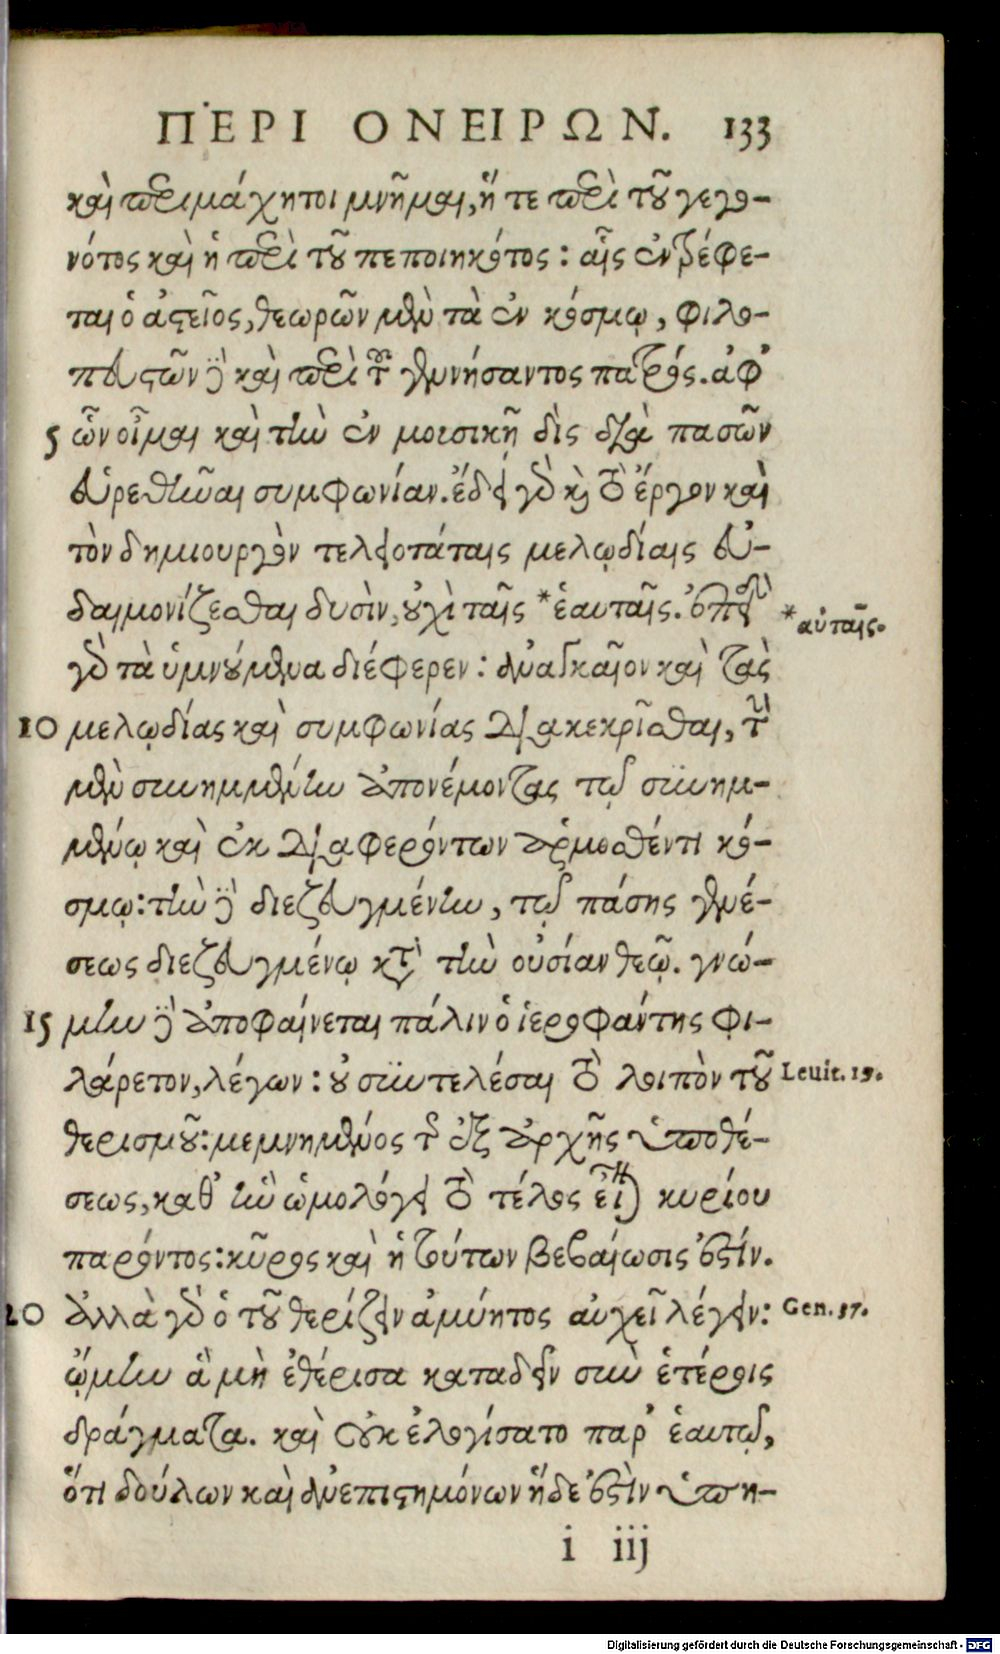 ΠΕΡΙ ΟΝΕΙΡΩΝ. 133
καὶ περιμάχητοι μνῆμαι, ἥ τε περὶ τοῦ γεγο-
νότος καὶ ἡ περὶ τοῦ πεποιηκότος: αἷς ἐντρέφε-
ται ὁ ἀστεῖος, θεωρῶν μὲν τὰ ἐν κόσμῳ, φιλο-
πευστῶν δὲ καὶ περὶ τοῦ γεννήσαντος πατρός. ἀφ’
5 ὧν οἶμαι καὶ τὴν ἐν μουσικῇ δὶς διὰ πασῶν
εὑρεθῆναι συμφωνίαν. ἔδει γὰρ καὶ τὸ ἔργον καὶ
τὸν δημιουργὸν τελειοτάταις μελῳδίαις εὐ-
δαιμονίζεσθαι δυσὶν, οὐχὶ ταῖς *ἑαυταῖς. ἐπειδὴ
*αὐταῖς.
γὰρ τὰ ὑμνούμενα διέφερεν: ἀναγκαῖον καὶ τὰς
10 μελῳδίας καὶ συμφωνίας διακεκρῖσθαι, τὴν
μὲν συνημμένην ἀπονέμοντας τῷ συνημ-
μένῳ καὶ ἐκ διαφερόντων ἁρμοσθέντι κό-
σμῳ: τὴν δὲ διεζευγμένην, τῷ πάσης γενέ-
σεως διεζευγμένῳ κατὰ τὴν οὐσίαν θεῷ. γνώ-
15 μην δὲ ἀποφαίνεται πάλιν ὁ ἱεροφάντης φι-
λάρετον, λέγων: οὐ συντελέσαι τὸ λοιπὸν τοῦ
Leuit. 19.
θερισμοῦ: μεμνημένος τῆς ἐξ ἀρχῆς ὑποθέ-
σεως, καθ’ ἣν ὡμολόγει τὸ τέλος εἶναι κυρίου
παρόντος: κῦρος καὶ ἡ τούτων βεβαίωσις ἐστίν.
20 ἀλλὰ γὰρ ὁ τοῦ θερίζειν ἀμύητος αὐχεῖ λέγειν:
Gen. 37.
ᾤμην ἃ μὴ ἐθέρισα καταδεῖν σὺν ἑτέροις
δράγματα. καὶ οὐκ ἐλογίσατο παρ’ ἑαυτῷ,
ὅτι δούλων καὶ ἀνεπιστημόνων ἥδε ἐστὶν ὑπη-
i iij
Digitalisierung gefördert durch die Deutsche Forschungsgemeinschaft - DFG